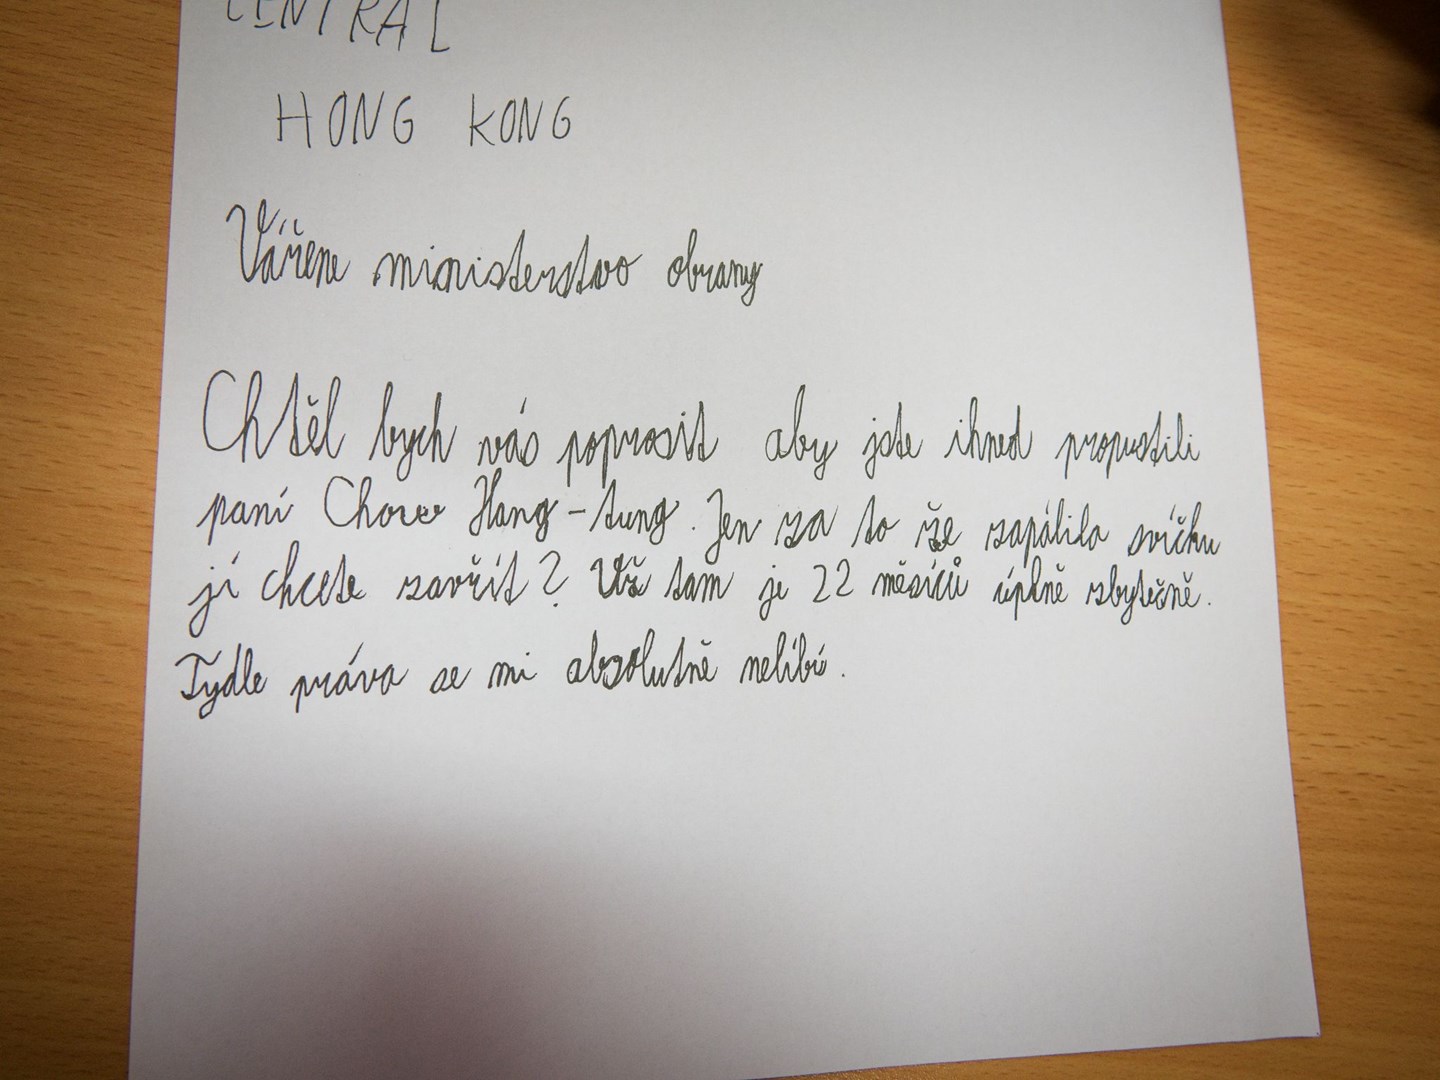 CENTRAL
HONG KONG
Vářene ministerstvo obrany
Chtěl bych vás poprosit aby jste ihned propustili
paní Chow Hang-tung. Jen za to že zapálila svíčku
jí chcete zavřít? Už tam je 22 měsíců úplně zbytečně.
Tydle práva se mi absolutně nelíbí.